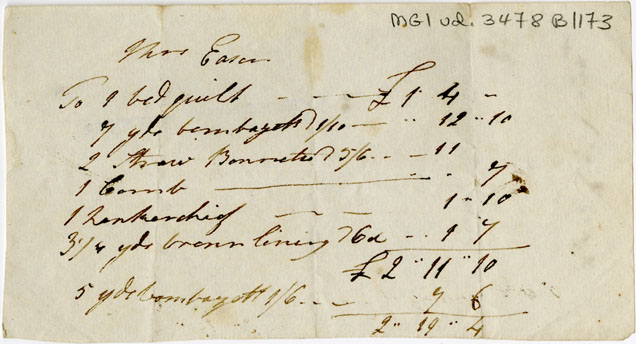 MG1 vol. 3478 B/173
Mrs Eason
To 1 bed quilt — — £1 4 –
7 yds bombazett @ 1/10 — " 12 " 10
2 Straw Bonnets @ 5/6 .. — 11
1 Comb — " . 7
1 Hankerchief — — 1 " 10
3 1/4 yds brown lining @ 6d - .. 1 7
£2 " 11 " 10
5 yds bombazett 1/6 .. — 7 6
2 " 19 " 4